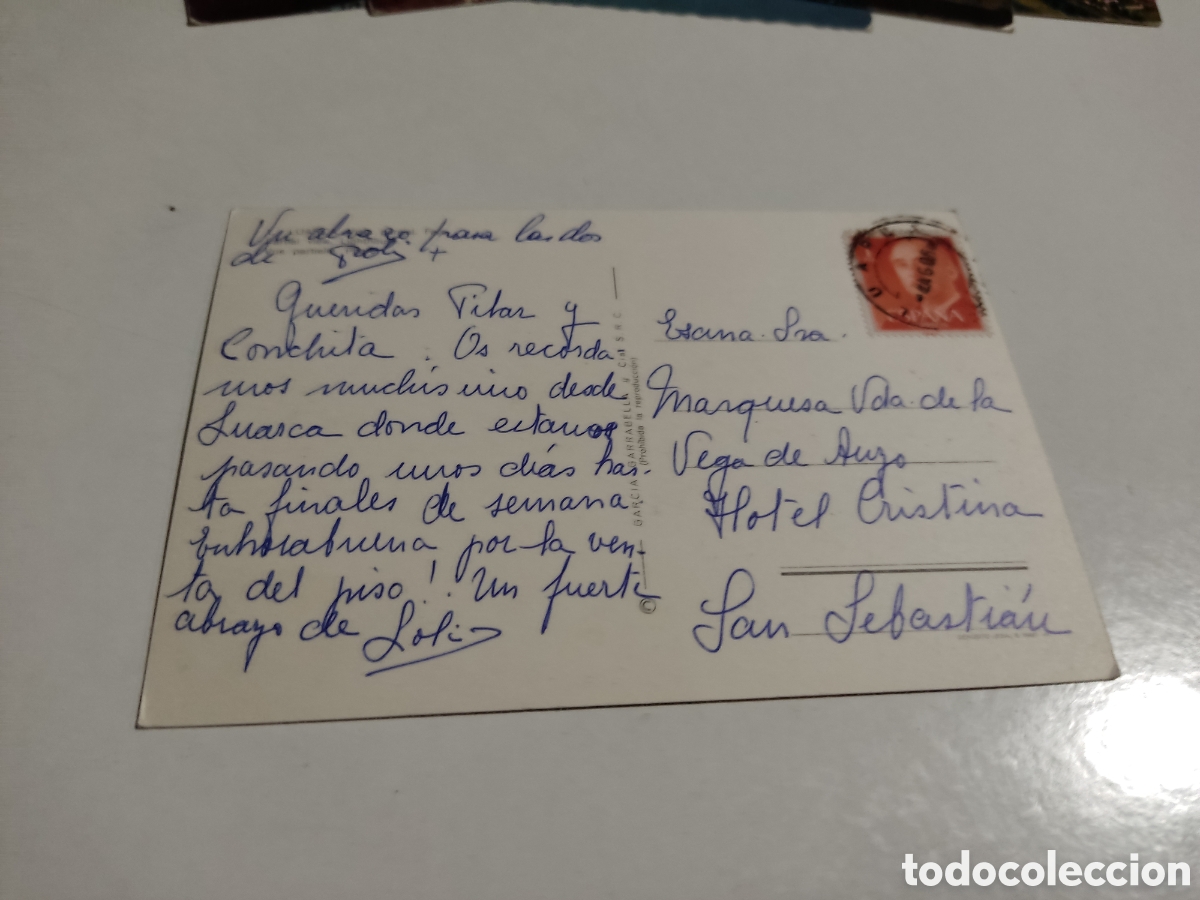 Un abrazo para las dos
de
Queridas Pilar y
Conchita. Os recorda
mos muchísimo desde
Luarca donde estamos
pasando unos días has-
ta finales de semana
Enhorabuena por la ven-
ta del piso! Un fuerte
abrazo de Loli
© GARCIA GARRABELLA y Cía. S.R.C.
(Prohibida la reproducción)
LUARCA
ESPAÑA
Excma. Sra.
Marquesa Vda. de la
Vega de Anzo
Hotel Cristina
San Sebastián
todocoleccion